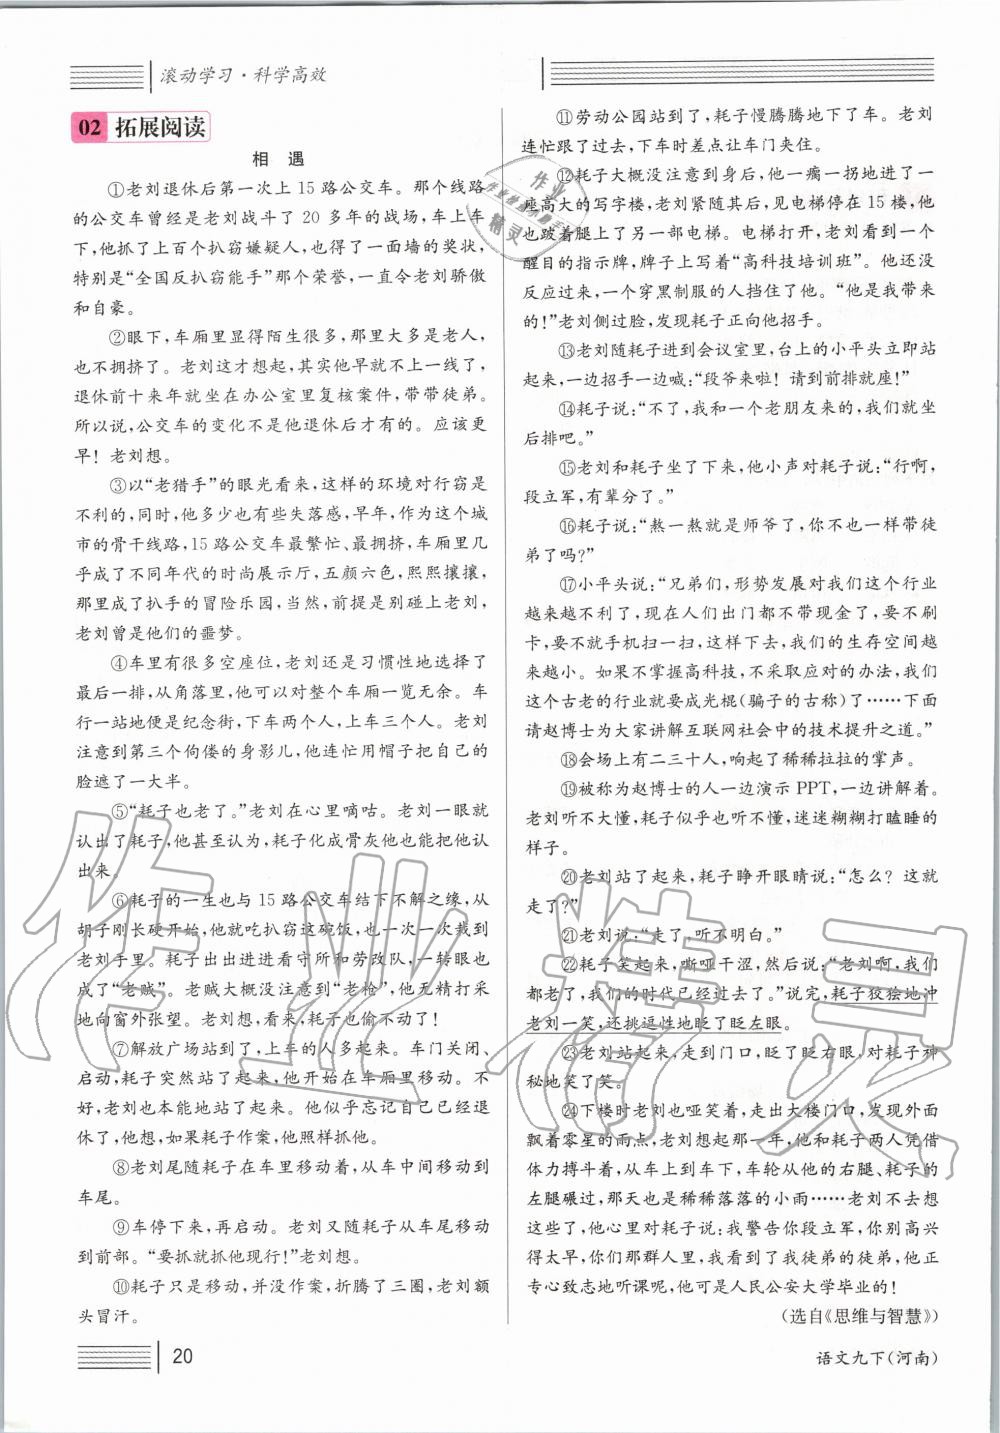 滚动学习·科学高效
02 拓展阅读
相 遇
①老刘退休后第一次上 15 路公交车。那个线路
的公交车曾经是老刘战斗了 20 多年的战场，车上车
下，他抓了上百个扒窃嫌疑人，也得了一面墙的奖状，
特别是“全国反扒窃能手”那个荣誉，一直令老刘骄傲
和自豪。
②眼下，车厢里显得陌生很多，那里大多是老人，
也不拥挤了。老刘这才想起，其实不是那么回事，他
退休前十来年就坐在办公室里复核案件，带带徒弟。
所以说，公交车的变化不是他退休后才有的。应该更
早！老刘想。
③以“老猎手”的眼光看来，这样的环境对行窃是
不利的，同时，他多少也有些失落感，早年，作为这个城
市的骨干线路，15 路公交车最繁忙、最拥挤，车厢里几
乎成了不同年代的时尚展示厅，五颜六色，熙熙攘攘，
那里成了扒手的冒险乐园，当然，前提是别碰上老刘，
老刘曾是他们的噩梦。
④车里有很多空座位，老刘还是习惯性地选择了
最后一排，从角落里，他可以对整个车厢一览无余。车
行一站地便是纪念街，下车两个人，上车三个人。老刘
注意到第三个佝偻的身影儿，他连忙用帽子把自己的
脸遮了一大半。
⑤“耗子也老了。”老刘在心里嘀咕。老刘一眼就
认出了耗子，他甚至认为，耗子化成骨灰他也能把他认
出来。
⑥耗子的一生也与 15 路公交车结下不解之缘，从
胡子刚长硬开始，他就吃扒窃这碗饭，也一次一次栽到
老刘手里。耗子出出进进看守所和劳改队，一转眼也
成了“老贼”。老贼大概没注意到“老枪”，他无精打采
地向窗外张望。老刘想，看来，耗子也偷不动了！
⑦解放广场站到了，上车的人多起来。车门关闭、
启动，耗子突然站了起来，他开始在车厢里移动。不
好，老刘也本能地站了起来。他似乎忘记自己已经退
休了，他想，如果耗子作案，他照样抓他。
⑧老刘尾随耗子在车里移动着，从车中间移动到
车尾。
⑨车停下来，再启动。老刘又随耗子从车尾移动
到前部。“要抓就抓他现行！”老刘想。
⑩耗子只是移动，并没作案，折腾了三圈，老刘额
头冒汗。
⑪劳动公园站到了，耗子慢腾腾地下了车。老刘
连忙跟了过去，下车时差点让车门夹住。
⑫耗子大概没注意到身后，他一瘸一拐地进了一
座高大的写字楼，老刘紧随其后，见电梯停在 15 楼，他
也跛着腿上了另一部电梯。电梯打开，老刘看到一个
醒目的指示牌，牌子上写着“高科技培训班”。他还没
反应过来，一个穿黑制服的人挡住了他。“他是我带来
的！”老刘侧过脸，发现耗子正向他招手。
⑬老刘随耗子进到会议室里，台上的小平头立即站
起来，一边招手一边喊：“段爷来啦！请到前排就座！”
⑭耗子说：“不了，我和一个老朋友来的，我们就坐
后排吧。”
⑮老刘和耗子坐了下来，他小声对耗子说：“行啊，
段立军，有辈分了。”
⑯耗子说：“熬一熬就是师爷了，你不也一样带徒
弟了吗？”
⑰小平头说：“兄弟们，形势发展对我们这个行业
越来越不利了，现在人们出门都不带现金了，要不刷
卡，要不就手机扫一扫，这样下去，我们的生存空间越
来越小。如果不掌握高科技，不采取应对的办法，我们
这个古老的行业就要成光棍（骗子的古称）了……下面
请赵博士为大家讲解互联网社会中的技术提升之道。”
⑱会场上有二三十人，响起了稀稀拉拉的掌声。
⑲被称为赵博士的人一边演示 PPT，一边讲解着。
老刘听不大懂，耗子似乎也听不大懂，迷迷糊糊打瞌睡的
样子。
⑳老刘站了起来，耗子睁开眼睛说：“怎么？这就
走了？”
㉑老刘说：“走了，听不明白。”
㉒耗子笑起来，嘶哑干涩，然后说：“老刘啊，我们
都老了，我们的时代已经过去了。”说完，耗子狡狯地冲
老刘一笑，还挑逗性地眨了眨左眼。
㉓老刘站起来，走到门口，眨了眨右眼，对耗子神
秘地笑了笑。
㉔下楼时老刘也哑笑着，走出大楼门口，发现外面
飘着零星的雨点，老刘突然想起那一年，他和耗子两人凭借
体力搏斗着，从车上到车下，车轮从他的右腿、耗子的
左腿碾过，那天也是稀稀落落的小雨……老刘不去想
这些了，他心里对耗子说：我警告你段立军，你别高兴
得太早，你们那群人里，我看到了我徒弟的徒弟，他正
专心致志地听课呢，他可是人民公安大学毕业的！
（选自《思维与智慧》）
20
语文九下（河南）
作业
精灵
作业精灵